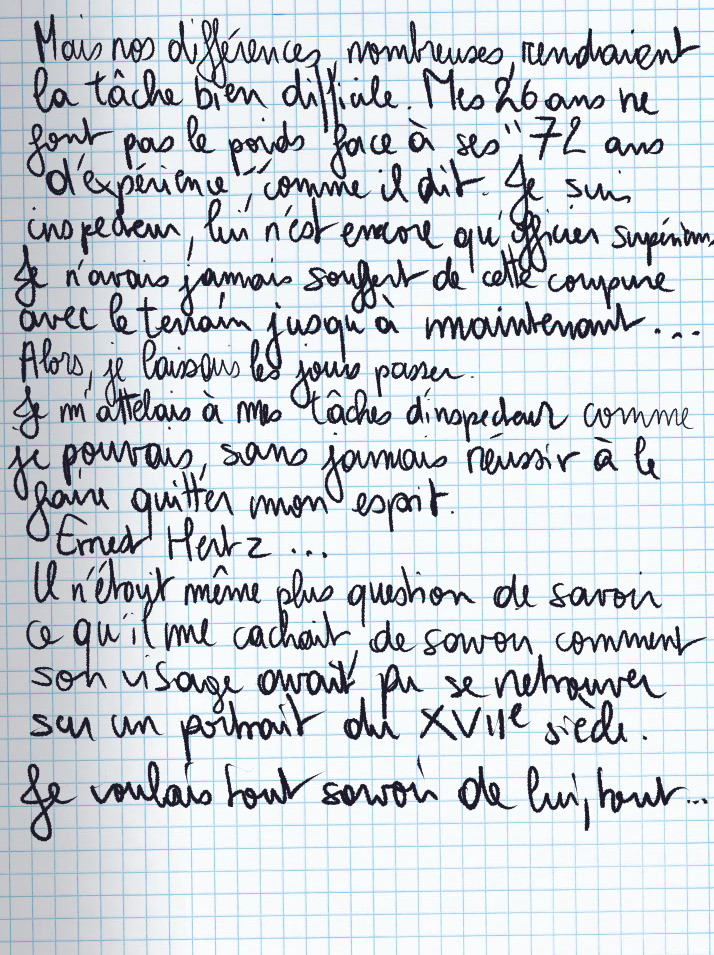 Mais nos différences, nombreuses, rendaient
la tâche bien difficile. Mes 26 ans ne
font pas le poids face à ses "72 ans
d'expérience", comme il dit. Je suis
inspecteur, lui n'est encore qu'officier supérieur.
Je n'avais jamais souffert de cette coupure
avec le terrain jusqu'à maintenant...
Alors, je laissais les jours passer.
Je m'attelais à mes tâches d'inspecteur comme
je pouvais, sans jamais réussir à le
faire quitter mon esprit.
Ernest Hertz...
Il n'était même plus question de savoir
ce qu'il me cachait, de savoir comment
son visage avait pu se retrouver
sur un portrait du XVIIe siècle.
Je voulais tout savoir de lui, tout...